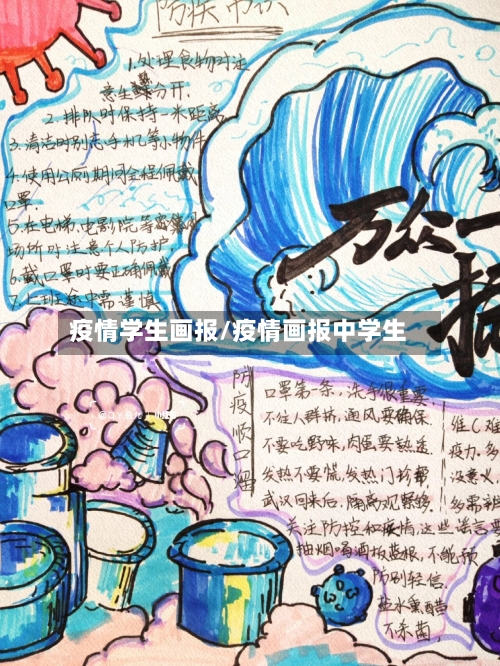 防疾知识
1.处理食物时注
意生熟分开.
2.排队时保持一米距离
3.清洁时别忘手机等小物件
4.使用公厕期间全程佩戴
口罩.
5.在电梯.电影院等密集
场所时注意个人防护
6.戴口罩时要正确佩戴
7.上班途中需谨慎
万众一
疫情学生画报/疫情画报中学生
防疫顺口溜
口罩第一条,洗手很重要.
不往人群挤,通风要确保.
不要吃野味,肉蛋要熟透.
发热不要慌,发热门诊
武汉回来后,隔离观察
维C难
疫力.多
没意义
多需
关注防控和疫情,这些谣言
抽烟喝酒板蓝根,不能预
防别轻信.
盐水熏醋
不杀菌,